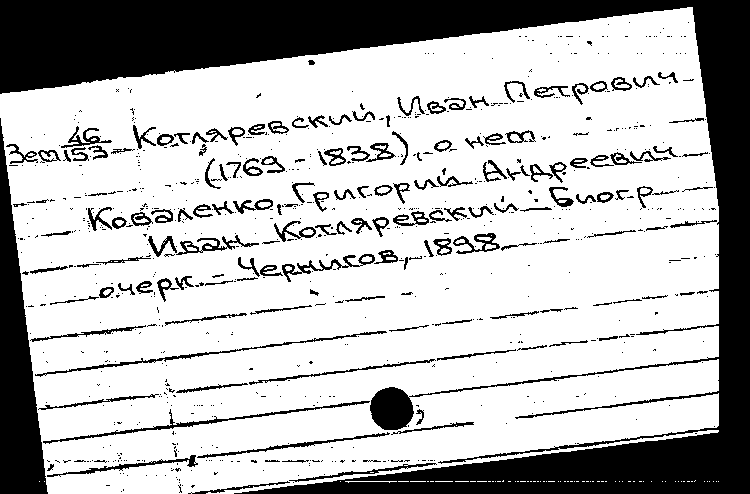 Зем 46/153 Котляревский, Иван Петрович
(1769 - 1838), о нем.
Коваленко, Григорий Андреевич
Иван Котляревский : Биогр
очерк. - Чернигов, 1898